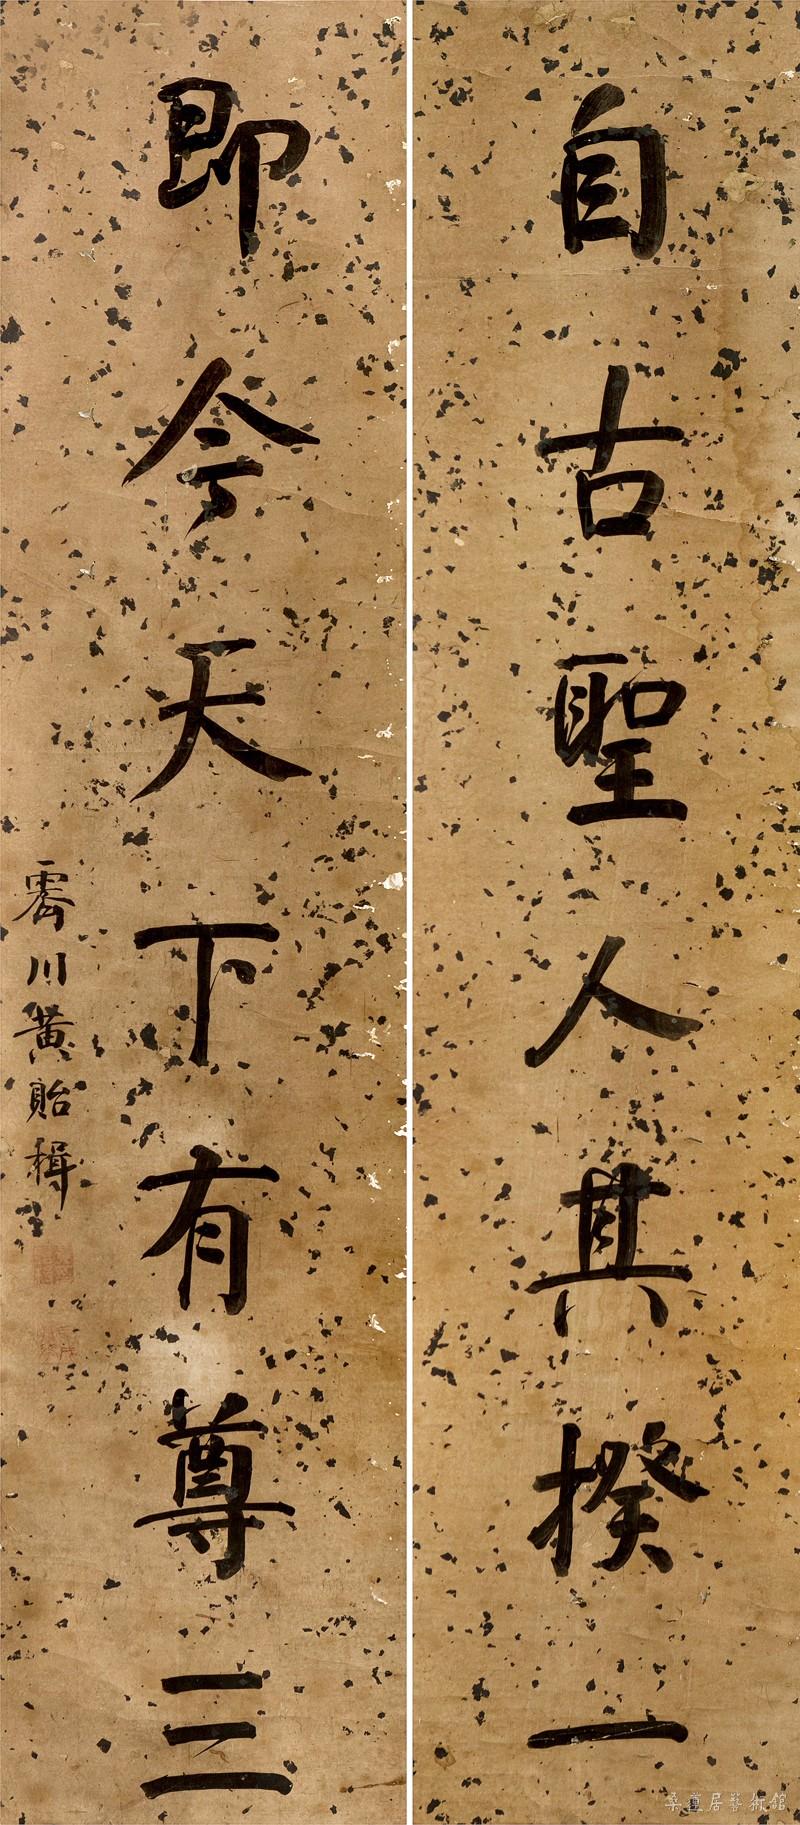 自古聖人其揆一
即今天下有尊三
霱川黃貽楫
桑蓮居藝術館